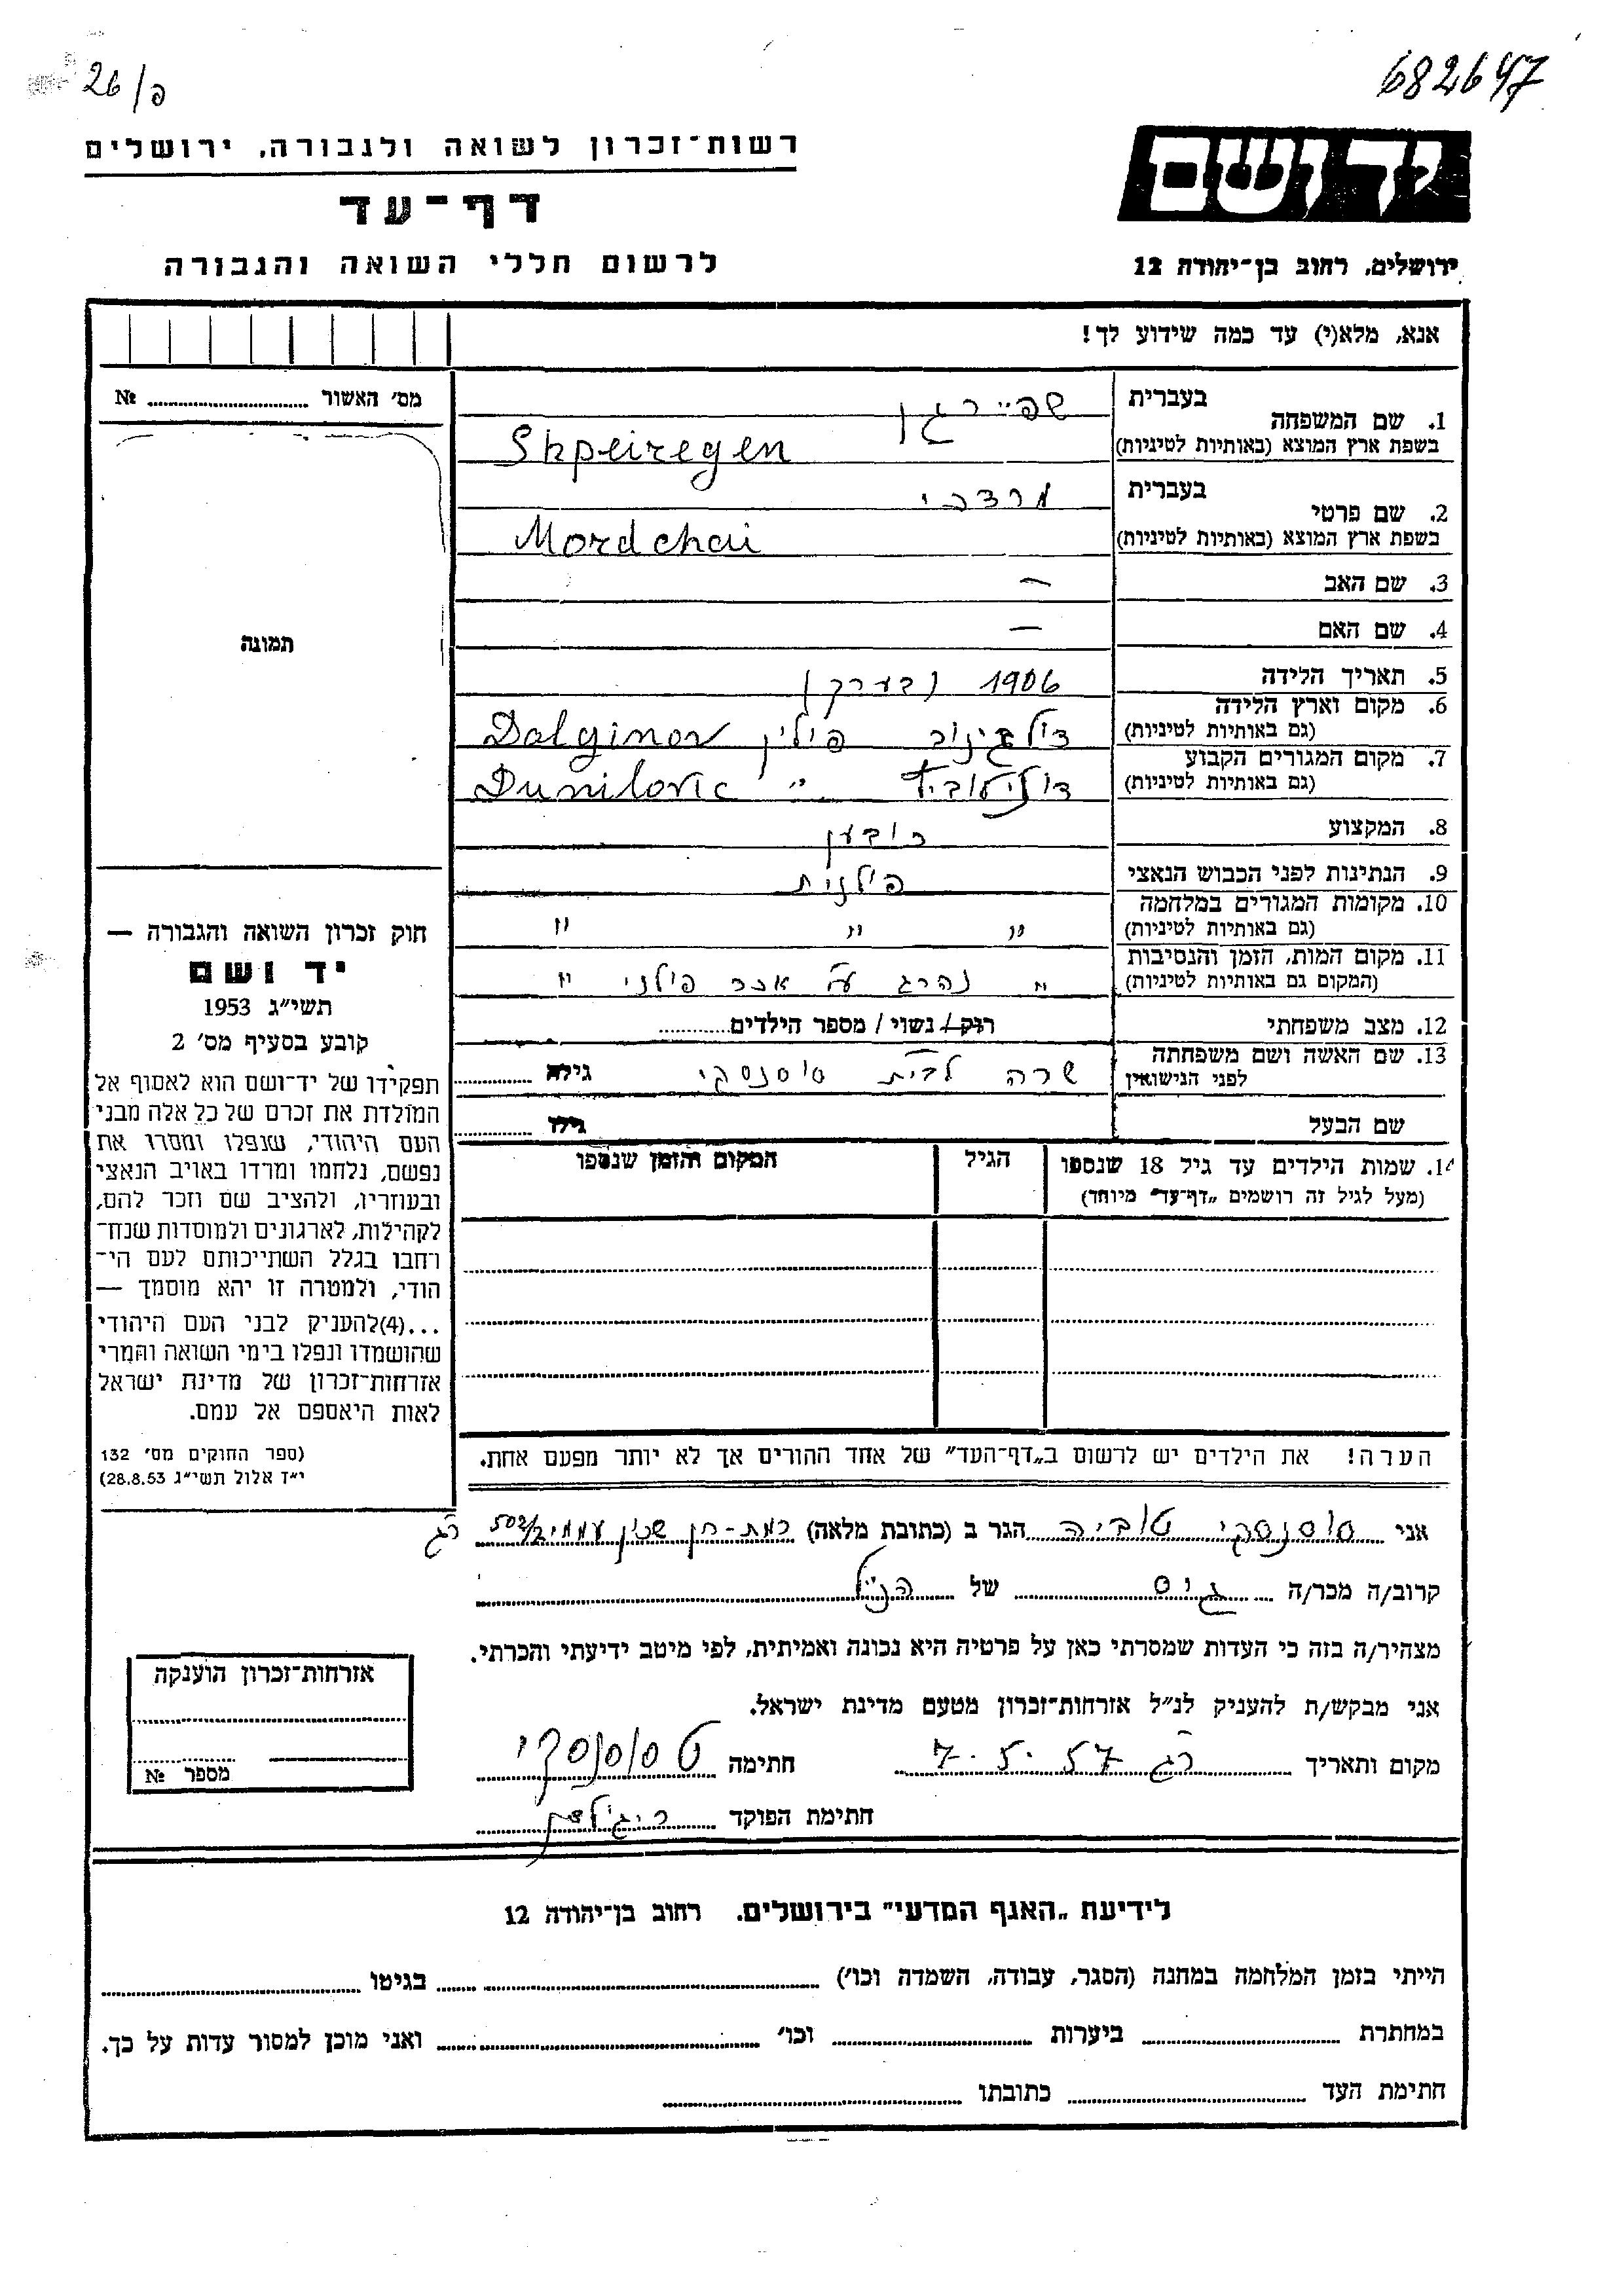 26/פ
682647
רשות-זכרון לשואה ולגבורה, ירושלים
דף-עד
לרשום חללי השואה והגבורה
ידושם
ירושלים, רחוב בן-יהודה 12
אנא, מלא(י) עד כמה שידוע לך!
מס׳ האשור №
תמונה
1. שם המשפחה
בעברית שפיירגן
בשפת ארץ המוצא (באותיות לטיניות) Shpeiregen
2. שם פרטי
בעברית מרדכי
בשפת ארץ המוצא (באותיות לטיניות) Mordchai
3. שם האב —
4. שם האם —
5. תאריך הלידה 1906 (בערך)
6. מקום וארץ הלידה
(גם באותיות לטיניות) דולגינוב פולין Dalginov
7. מקום המגורים הקבוע
(גם באותיות לטיניות) דונילוביץ " Dunilovic
8. המקצוע כובען
9. הנתינות לפני הכבוש הנאצי פולנית
10. מקומות המגורים במלחמה
(גם באותיות לטיניות) " " "
11. מקום המות, הזמן והנסיבות
(המקום גם באותיות לטיניות) " נהרג ע"י אכר פולני "
12. מצב משפחתי רוק/ נשוי / מספר הילדים
13. שם האשה ושם משפחתה
לפני הנישואין שרה לבית סוסנסקי גילה
שם הבעל גילו
14. שמות הילדים עד גיל 18 שנספו הגיל המקום והזמן שנספו
(מעל לגיל זה רושמים „דף-עד" מיוחד)
הערה! את הילדים יש לרשום ב„דף-העד" של אחד ההורים אך לא יותר מפעם אחת.
חוק זכרון השואה והגבורה —
יד ושם
תשי״ג 1953
קובע בסעיף מס׳ 2
תפקידו של יד-ושם הוא לאסוף אל
המולדת את זכרם של כל אלה מבני
העם היהודי, שנפלו ומסרו את
נפשם, נלחמו ומרדו באויב הנאצי
ובעוזריו, ולהציב שם וזכר להם,
לקהילות, לארגונים ולמוסדות שנח-
רחבו בגלל השתייכותם לעם הי-
הודי, ולמטרה זו יהא מוסמך —
...(4) להעניק לבני העם היהודי
שהושמדו ונפלו בימי השואה והמרי
אזרחות-זכרון של מדינת ישראל
לאות היאספם אל עמם.
(ספר החוקים מס׳ 132
י״ד אלול תשי״ג 28.8.53)
אני סוסנסקי טוביה הגר ב (כתובת מלאה) רמת-חן שכון עממי ב/502 רג
קרוב/ה מכר/ה גיס של הנ״ל
מצהיר/ה בזה כי העדות שמסרתי כאן על פרטיה היא נכונה ואמיתית, לפי מיטב ידיעתי והכרתי.
אני מבקש/ת להעניק לנ״ל אזרחות-זכרון מטעם מדינת ישראל.
מקום ותאריך רג 7.5.57 חתימה ט סוסנסקי
חתימת הפוקד
אזרחות-זכרון הוענקה
מספר №
לידיעת „האגף המדעי" בירושלים. רחוב בן-יהודה 12
הייתי בזמן המלחמה במחנה (הסגר, עבודה, השמדה וכו׳) בגיטו
במחתרת ביערות וכו׳ ואני מוכן למסור עדות על כך.
חתימת העד כתובתו